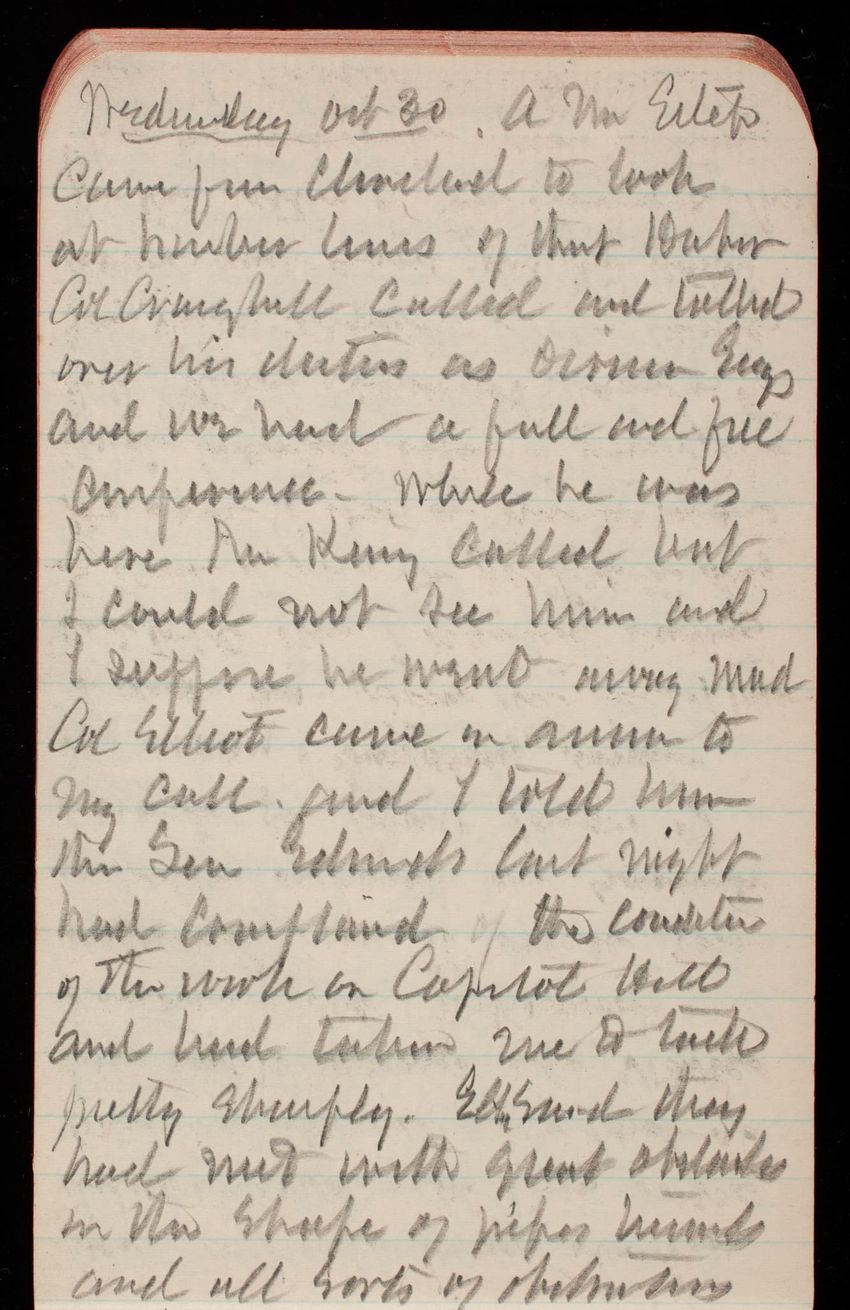 Wednesday Oct 30. A Mr
Came from Cleveland to look
at harbor lines of that Harbor
Col Craighill Called and talked
over his duties as Division Engr
and we had a full and free
Conference - While he was
here Mr King Called but
I could not see him and
I suppose he went away mad
Col Elliot came in answer to
my call. and I told him
the Sen Edmunds last night
had Complained of the condition
of the work on Capitol Hill
and had taken me to task
pretty sharply. Ellt said they
had met with great obstacles
in the shape of pipes
and all sorts of obstructions